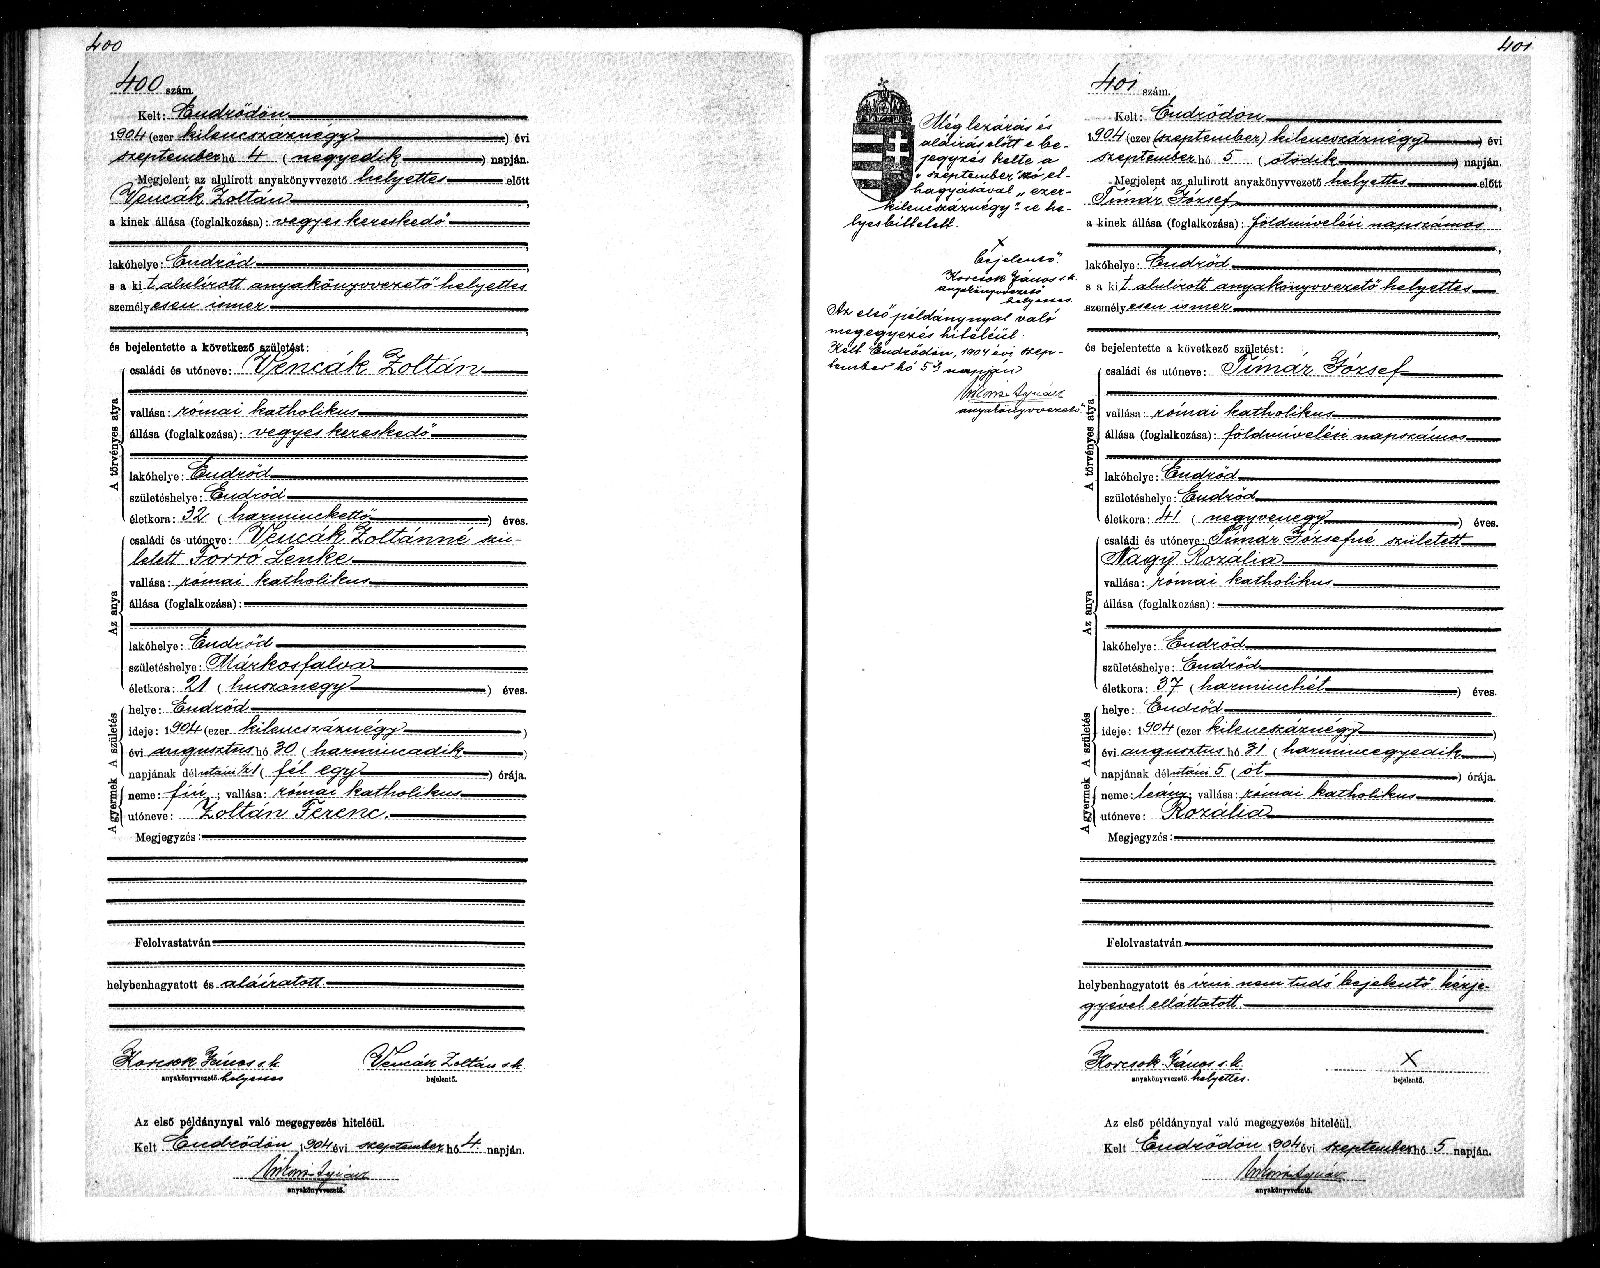 400
400 szám.
Kelt: Endrődön
1904 (ezer kilencszáznégy) évi
szeptember hó 4 (negyedik) napján.
Megjelent az alulirott anyakönyvvezető helyettes előtt
Vencák Zoltán,
a kinek állása (foglalkozása): vegyeskereskedő
lakóhelye: Endrőd
s a kit alulírott anyakönyvvezető helyettes
személyesen ismer
és bejelentette a következő születést:
A törvényes atya
családi és utóneve: Vencák Zoltán
vallása: római katholikus
állása (foglalkozása): vegyeskereskedő
lakóhelye: Endrőd
születéshelye: Endrőd
életkora: 32 (harminckettő) éves.
Az anya
családi és utóneve: Vencák Zoltánné szü-
letett Forró Lenke
vallása: római katholikus
állása (foglalkozása):
lakóhelye: Endrőd
születéshelye: Márkosfalva
életkora: 21 (huszonegy) éves.
A születés
helye: Endrőd
ideje: 1904 (ezer kilencszáznégy)
évi augusztus hó 30 (harmincadik)
napjának délután ½1 (fél egy) órája.
A gyermek
neme: fiú; vallása: római katholikus
utóneve: Zoltán Ferenc.
Megjegyzés:
Felolvastatván
helybenhagyatott és aláíratott
Korcsok János s.k. Vencák Zoltán s.k.
anyakönyvvezető helyettes bejelentő.
Az első példánynyal való megegyezés hiteléül.
Kelt Endrődön, 1904 évi szeptember hó 4 napján.
anyakönyvvezető.
401
Még lezárás és
aláírás előtt e be-
jegyzés kelte a
"szeptember" szó el-
hagyásával, "ezer-
kilencszáznégy"-re he-
lyesbíttetett.
X
bejelentő
Korcsok János s.k.
anyakönyvvezető
helyettes.
Az első példánynyal való
megegyezés hiteléül
Kelt Endrődön, 1904 évi szep-
tember hó 5 napján
anyakönyvvezető
401 szám.
Kelt: Endrődön
1904 (ezer (szeptember) kilencszáznégy) évi
szeptember hó 5 (ötödik) napján.
Megjelent az alulirott anyakönyvvezető helyettes előtt
Tímár József,
a kinek állása (foglalkozása): földmívelési napszámos
lakóhelye: Endrőd
s a kit alulírott anyakönyvvezető helyettes
személyesen ismer
és bejelentette a következő születést:
A törvényes atya
családi és utóneve: Tímár József
vallása: római katholikus
állása (foglalkozása): földmívelési napszámos
lakóhelye: Endrőd
születéshelye: Endrőd
életkora: 41 (negyvenegy) éves.
Az anya
családi és utóneve: Tímár Józsefné született
Nagy Rozália
vallása: római katholikus
állása (foglalkozása):
lakóhelye: Endrőd
születéshelye: Endrőd
életkora: 37 (harminchét) éves.
A születés
helye: Endrőd
ideje: 1904 (ezer kilencszáznégy)
évi augusztus hó 31 (harmincegyedik)
napjának délután 5 (öt) órája.
A gyermek
neme: leány; vallása: római katholikus
utóneve: Rozália
Megjegyzés:
Felolvastatván
helybenhagyatott és írni nem tudó bejelentő kézje-
gyével elláttatott
Korcsok János s.k. X
anyakönyvvezető helyettes. bejelentő.
Az első példánynyal való megegyezés hiteléül.
Kelt Endrődön 1904 évi szeptember hó 5 napján.
anyakönyvvezető.